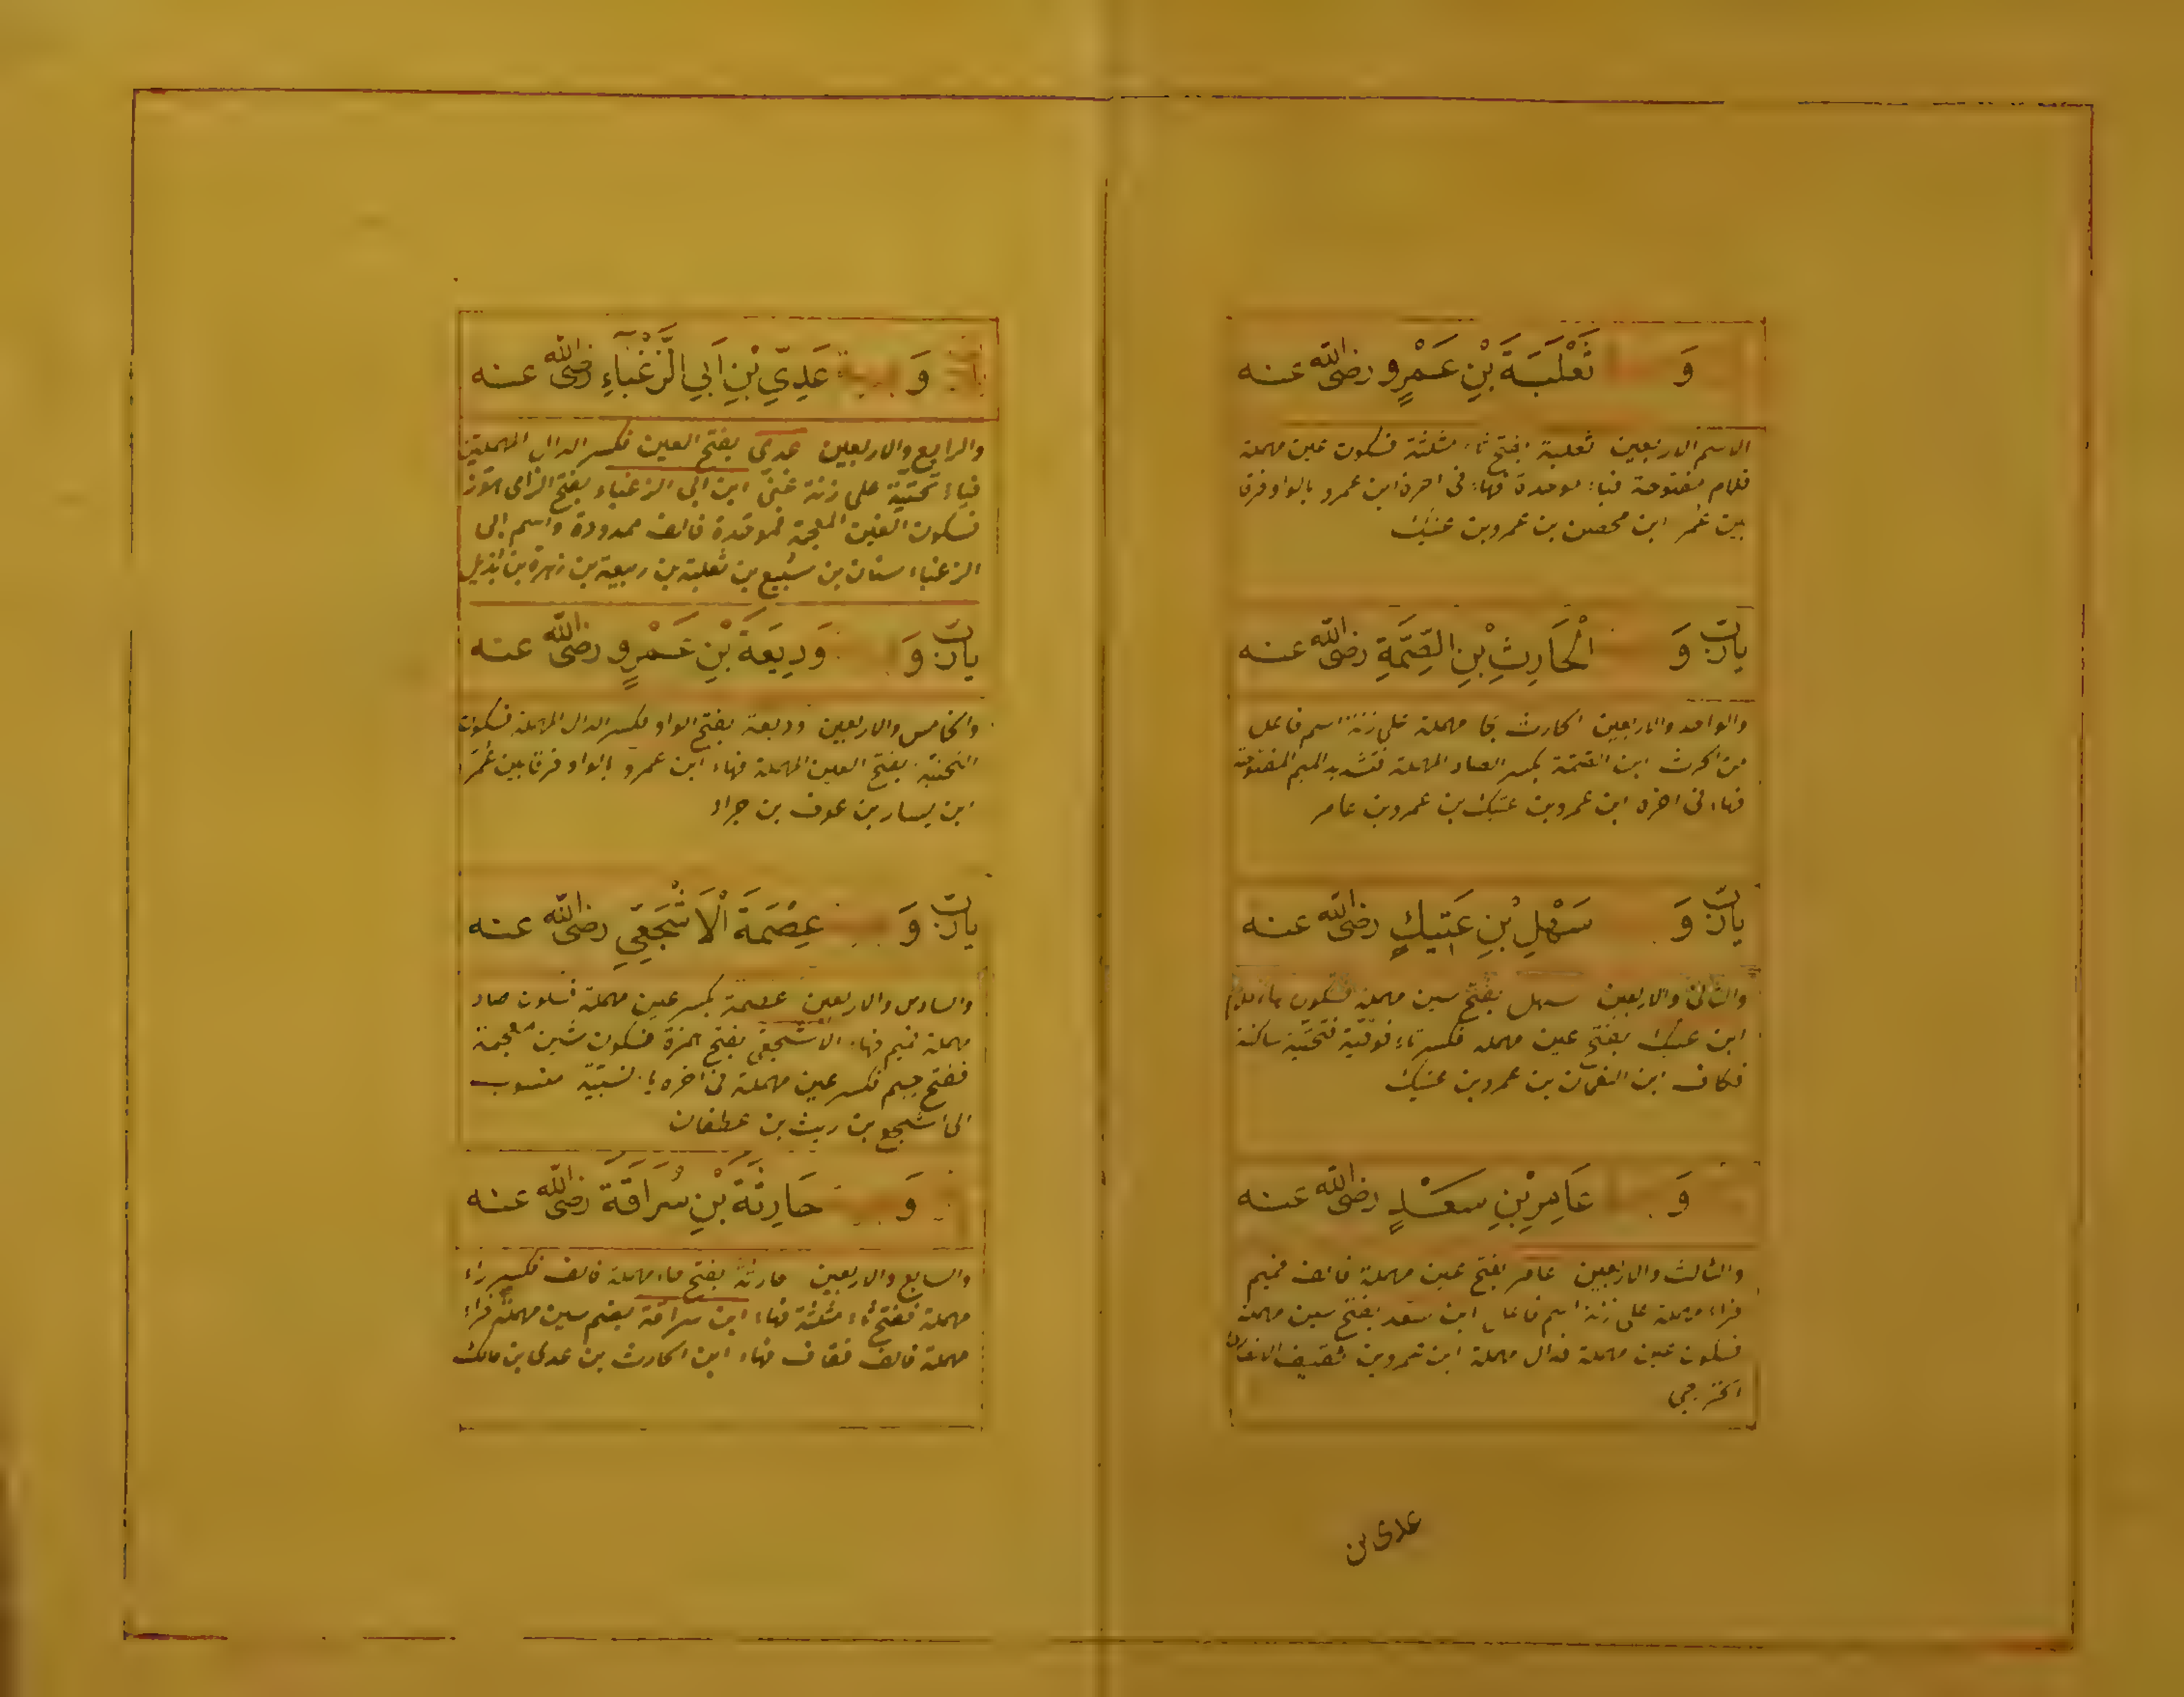 وَ ثَعْلَبَةَ بْنِ عَمْرٍو رضى الله عنه
الاسم الاربعين ثعلبة بفتح ثاء مثلثة فسكون عين مهملة
فلام مفتوحة فباء موحدة فهاء فى اخره ابن عمرو بالواو فرقا
بين عمر ابن محصن بن عمرو بن عتيك
يارب وَ الْحَارِثِ بْنِ الصِّمَّةِ رضى الله عنه
والواحد والاربعين الحارث بحا مهملة على زنة اسم فاعل
من الحرث ابن الصمة بكسر الصاد المهملة فتشديد الميم المفتوحة
فهاء فى اخره ابن عمرو بن عتيك بن عمرو بن عامر
يارب وَ سَهْلِ بْنِ عَتِيكٍ رضى الله عنه
والثانى والاربعين سهل بفتح سين مهملة فسكون هاء فلام
ابن عتيك بفتح عين مهمله فكسر تاء فوقية فتحتية ساكنة
فكاف ابن النعمان بن عمرو بن عتيك
وَ عَامِرِ بْنِ سَعْدٍ رضى الله عنه
والثالث والاربعين عامر بفتح عين مهملة فالف فميم
فراء مهملة على زنة اسم فاعل ابن سعد بفتح سين مهملة
فسكون عين مهملة فدال مهملة ابن عمرو بن ثقيف الانصارى
الخزرجى
عدى بن
وَ عَدِيِّ بْنِ اَبِي الزَّغْبَآءِ رضى الله عنه
والرابع والاربعين عدى بفتح العين فكسر الدال المهملتين
فياء تحتية على زنة غنى ابن ابى الزغباء بفتح الزاى
فسكون الغين المعجمة فموحدة فالف ممدودة واسم ابى
الزغباء سنان بن سبيع بن ثعلبة بن ربيعة بن زهرة بن بذيل
يارب وَ وَدِيعَةَ بْنِ عَمْرٍو رضى الله عنه
والخامس والاربعين وديعة بفتح الواو فكسر الدال المهملة فسكون
التحتية بفتح العين المهملة فهاء ابن عمرو بالواو فرقا بين عمر
ابن يسار بن عوف بن جراد
يارب وَ عِصْمَةَ الْاَشْجَعِيِ رضى الله عنه
والسادس والاربعين عصمة بكسر عين مهملة فسكون صاد
مهملة فميم فهاء الاشجعى بفتح همزة فسكون شين معجمة
ففتح جيم فكسر عين مهملة فى اخره ياء نسبية منسوب
الى اشجع بن ريث بن غطفان
وَ حَارِثَةَ بْنِ سُرَاقَةَ رضى الله عنه
والسابع والاربعين حارثة بفتح حاء مهملة فالف فكسر راء
مهملة ففتح ثاء مثلثة فهاء ابن سراقة بضم سين مهملة فراء
مهملة فالف فقاف فهاء ابن الحارث بن عدى بن مالك